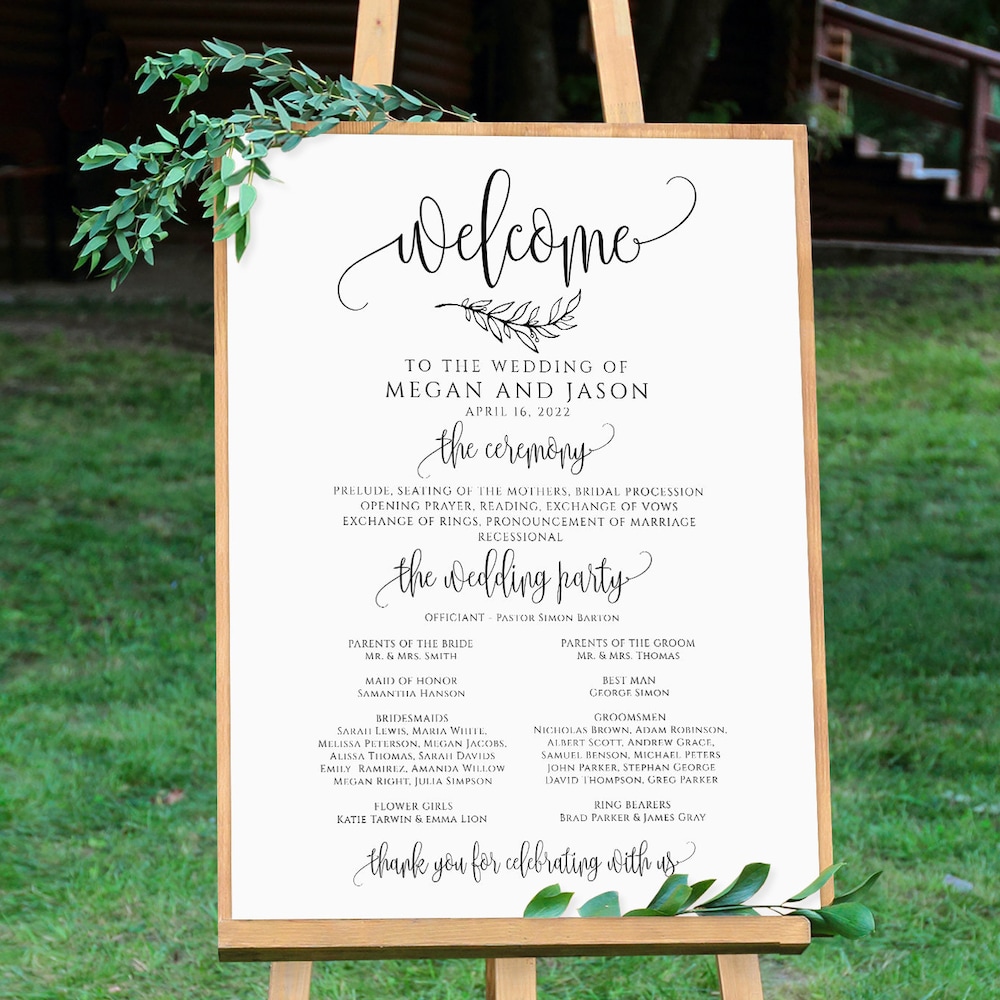 welcome
TO THE WEDDING OF
MEGAN AND JASON
APRIL 16, 2022
the ceremony
PRELUDE, SEATING OF THE MOTHERS, BRIDAL PROCESSION
OPENING PRAYER, READING, EXCHANGE OF VOWS
EXCHANGE OF RINGS, PRONOUNCEMENT OF MARRIAGE
RECESSIONAL
the wedding party
OFFICIANT - PASTOR SIMON BARTON
PARENTS OF THE BRIDE
MR. & MRS. SMITH
MAID OF HONOR
SAMANTHA HANSON
BRIDESMAIDS
SARAH LEWIS, MARIA WHITE,
MELISSA PETERSON, MEGAN JACOBS,
ALISSA THOMAS, SARAH DAVIDS
EMILY RAMIREZ, AMANDA WILLOW
MEGAN RIGHT, JULIA SIMPSON
FLOWER GIRLS
KATIE TARWIN & EMMA LION
PARENTS OF THE GROOM
MR. & MRS. THOMAS
BEST MAN
GEORGE SIMON
GROOMSMEN
NICHOLAS BROWN, ADAM ROBINSON,
ALBERT SCOTT, ANDREW GRACE,
SAMUEL BENSON, MICHAEL PETERS
JOHN PARKER, STEPHAN GEORGE
DAVID THOMPSON, GREG PARKER
RING BEARERS
BRAD PARKER & JAMES GRAY
thank you for celebrating with us